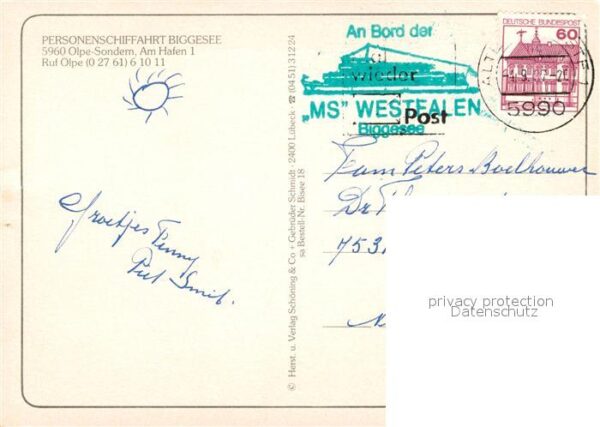 PERSONENSCHIFFAHRT BIGGESEE
5960 Olpe-Sondern, Am Hafen 1
Ruf Olpe (0 27 61) 6 10 11
An Bord der
wieder
„MS" WESTFALEN
Post
Biggesee
DEUTSCHE BUNDESPOST
60
5990
Fam Peters Boelhouwer
Dr
753
Groetjes Fenny
Piet Smit.
© Herst. u. Verlag Schöning & Co + Gebrüder Schmidt · 2400 Lübeck · ☎ (04 51) 3 12 24
sa Bestell-Nr. Bisee 18
privacy protection
Datenschutz